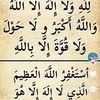 لِلَّهِ وَلَا إِلَهَ إِلَّا اللَّهُ
وَاللَّهُ أَكْبَرُ وَ لَا حَوْلَ
وَلَا قُوَّةَ إِلَّا بِاللَّهِ
أَسْتَغْفِرُ اللَّهَ الْعَظِيمَ
الَّذِي لَا إِلَهَ إِلَّا هُوَ